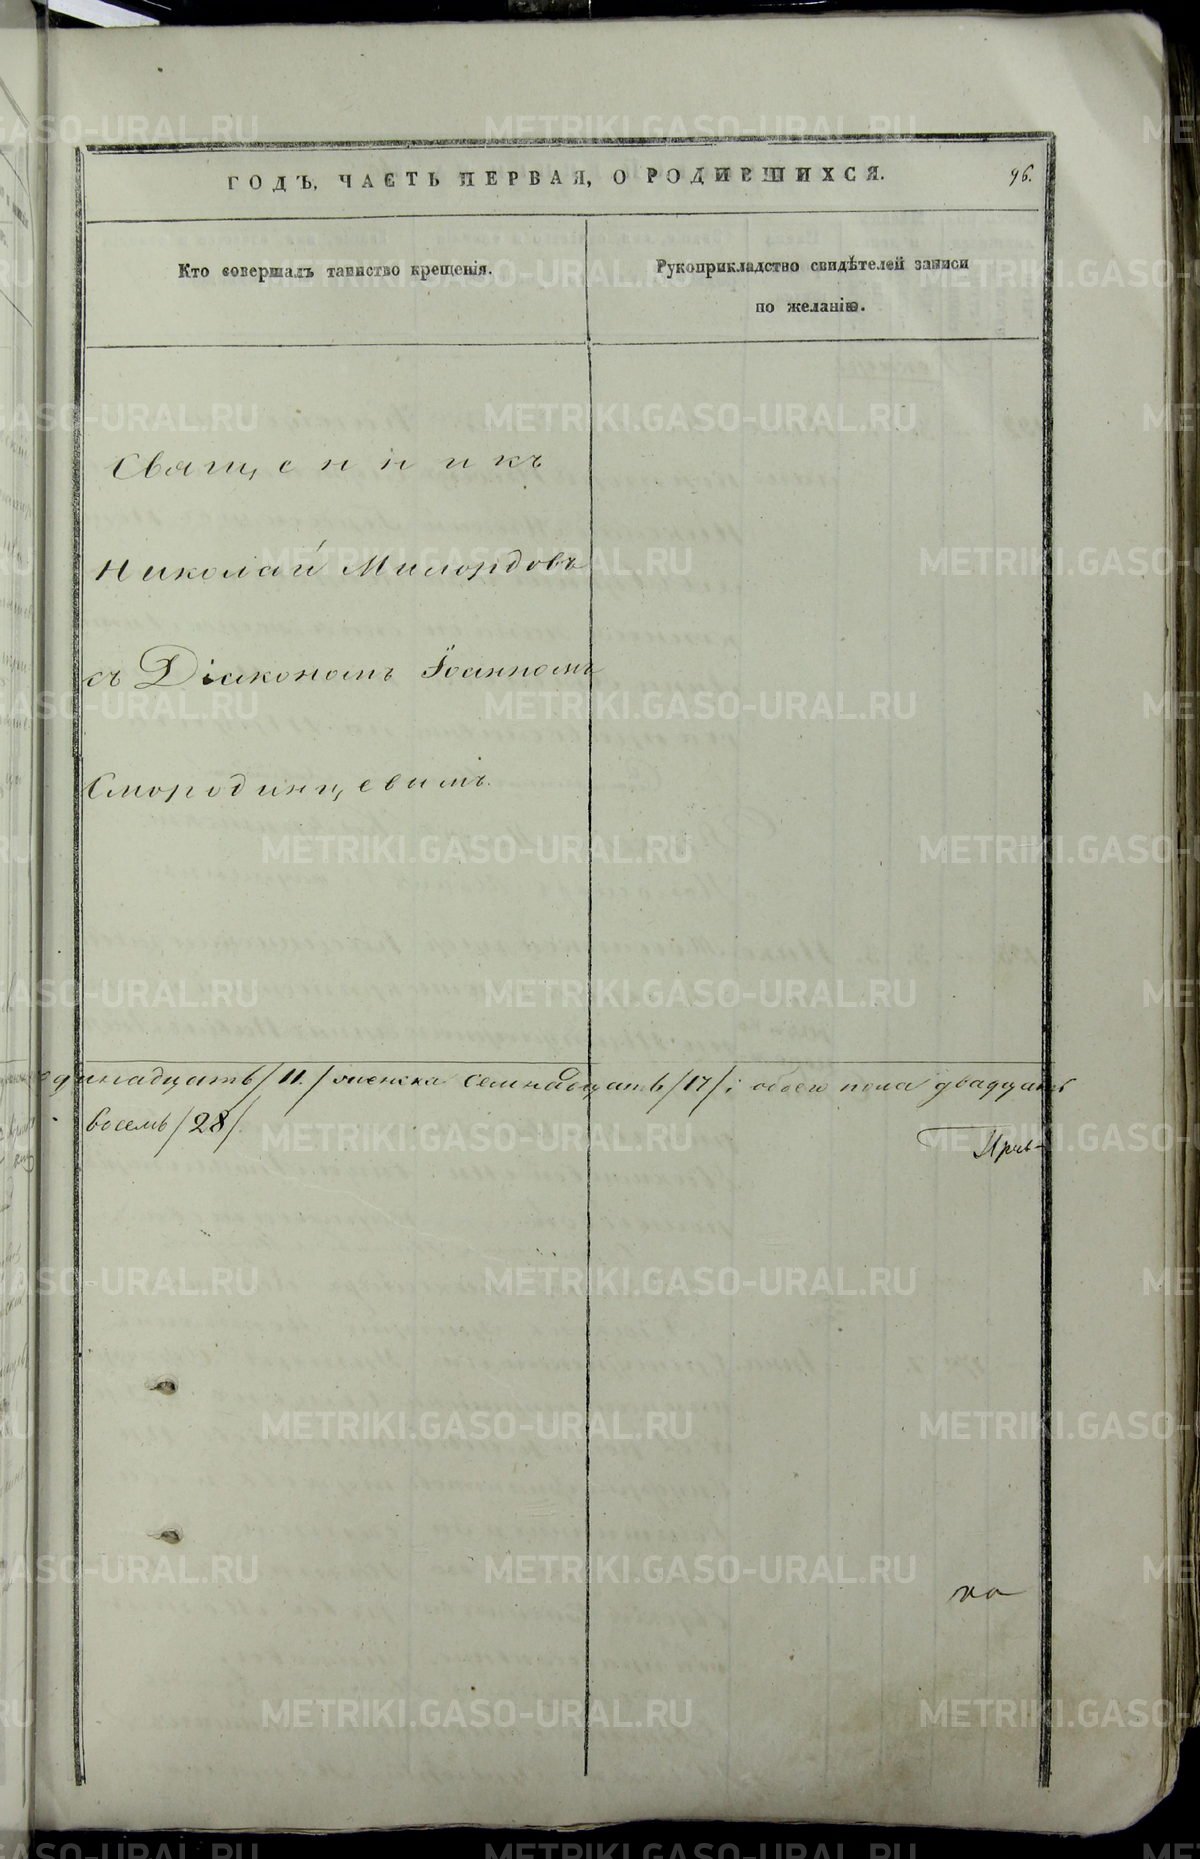 ГОДЪ, ЧАСТЬ ПЕРВАЯ, О РОДИВШИХСЯ.
96.
Кто совершалъ таинство крещенія.
Рукоприкладство свидѣтелей записи
по желанію.
Священникъ
Николай Милордовъ
съ Діакономъ Іоанномъ
Смородинцевымъ.
единадцать/11./ женска семнадцать/17/; обоего пола двадцать
восемь/28/.
METRIKI.GASO-URAL.RU